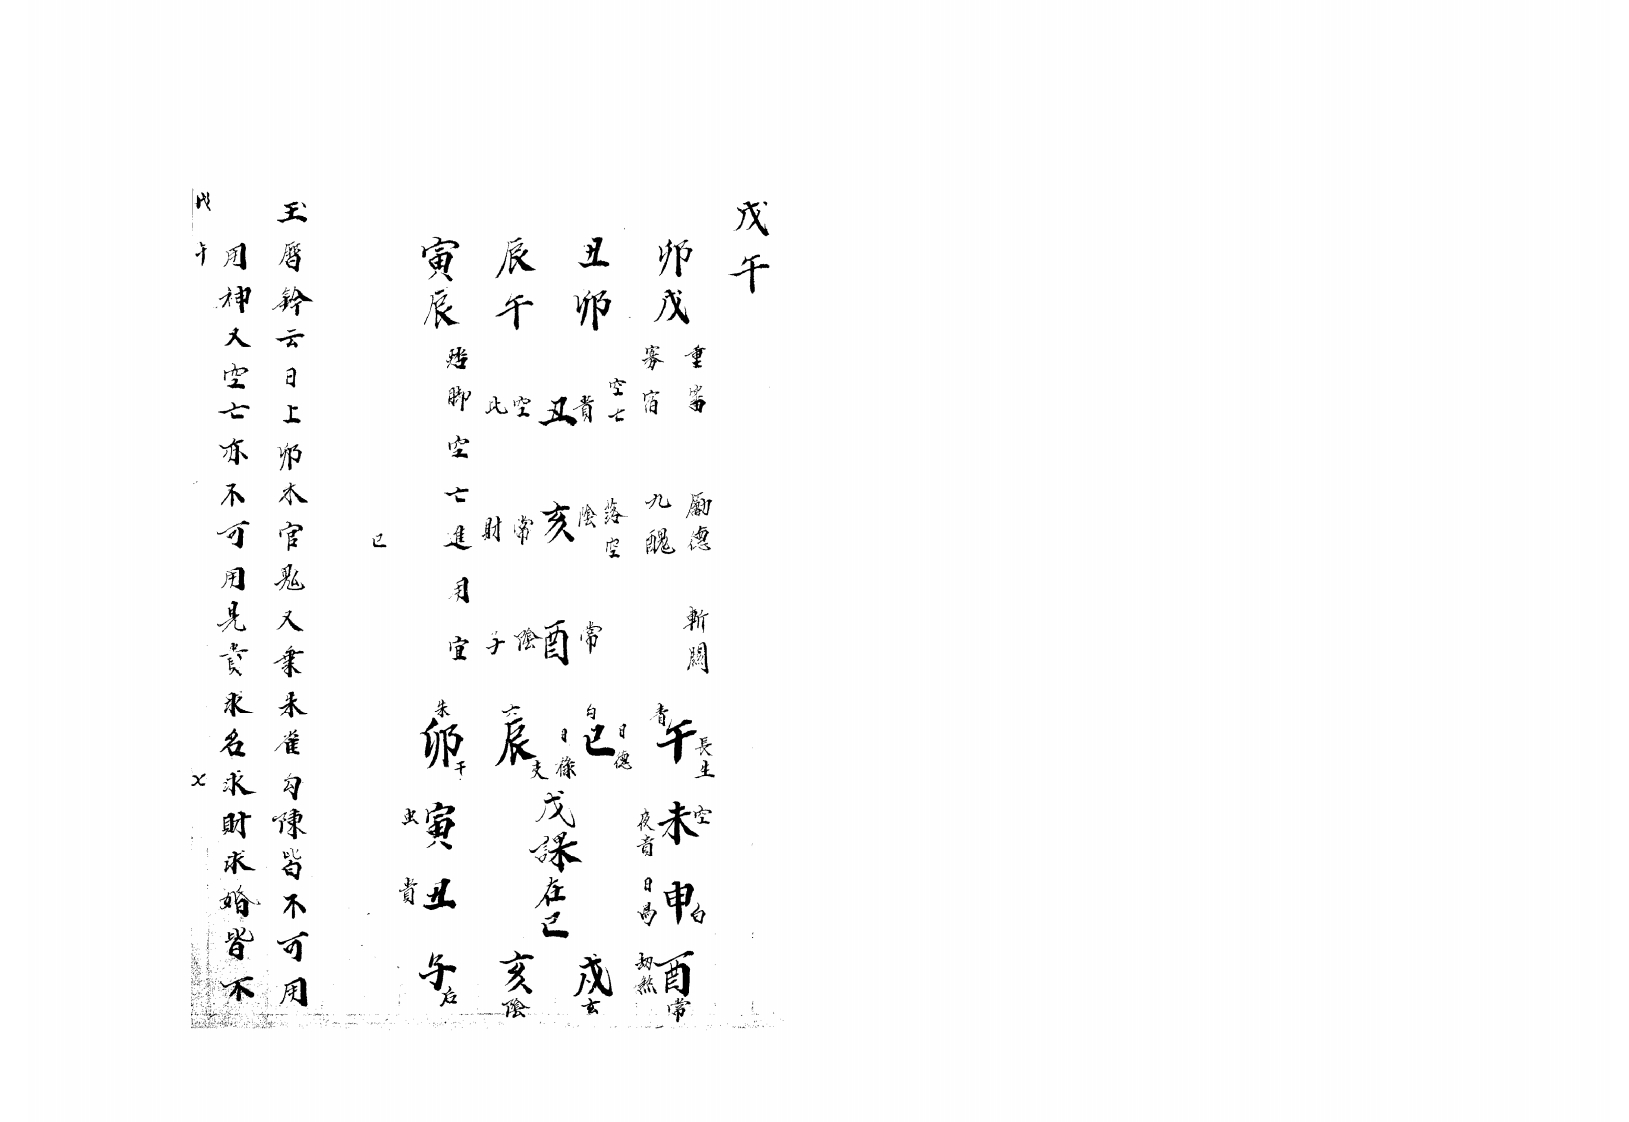 戊午
卯戊
丑卯
辰午
寅辰
重審
寡宿
勵德
九醜
斬關
空亡
貴丑空比
落空
陰亥常財
常酉陰子
踏脚空亡進用宜
巳
青午長生
勾巳日德
六辰
日祿
朱卯干
支
空未夜貴
戊課在巳
虫寅
白申日馬
貴丑
酉常劫煞
戌玄
亥陰
子后
玉曆鈐云日上卯木官鬼又乗朱雀勾陳皆不可用
用神又空亡亦不可用見貴求名求財求婚皆不
戊午